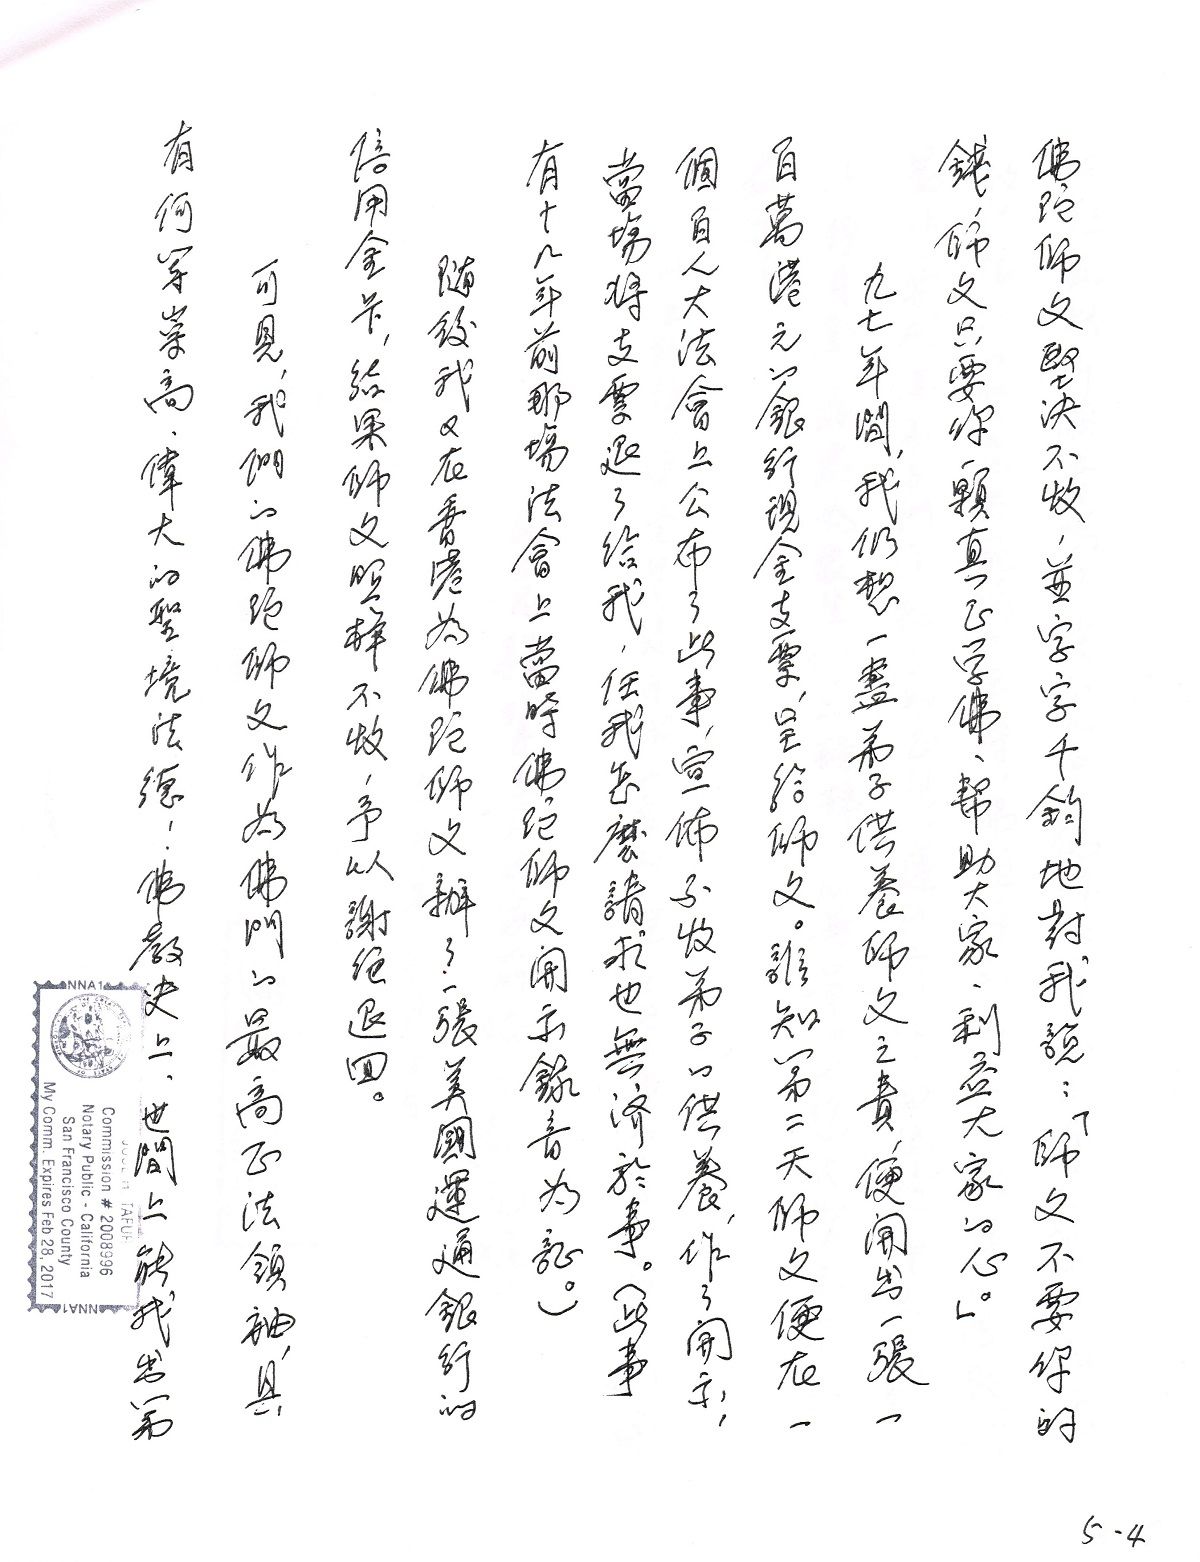 佛陀師父堅決不收，並字字千鈞地對我說：「師父不要你的
錢，師父只要你一顆真正学佛、幫助大家、利益大家的心。」
九七年間，我仍想一盡弟子供養師父之責，便開出一張一
百萬港元的銀行現金支票，呈給師父。誰知第二天師父便在一
個百人大法會上公布了此事，宣佈不收弟子的供養，作了開示，
當場將支票退了給我，任我怎麼請求也無济於事。（此事
有十九年前那場法會上當時佛陀師父開示錄音為証。）
隨後我又在香港為佛陀師父辦了一張美國運通銀行的
信用金卡，結果師父照樣不收，予以謝绝退回。
可見，我們的佛陀師父作為佛門的最高正法領袖，具
有何等崇高、偉大的聖境法德！佛教史上、世間上能找出第
NNA1
TAFUR
Commission # 2008996
Notary Public - California
San Francisco County
My Comm. Expires Feb 28, 2017
NNA1
5-4